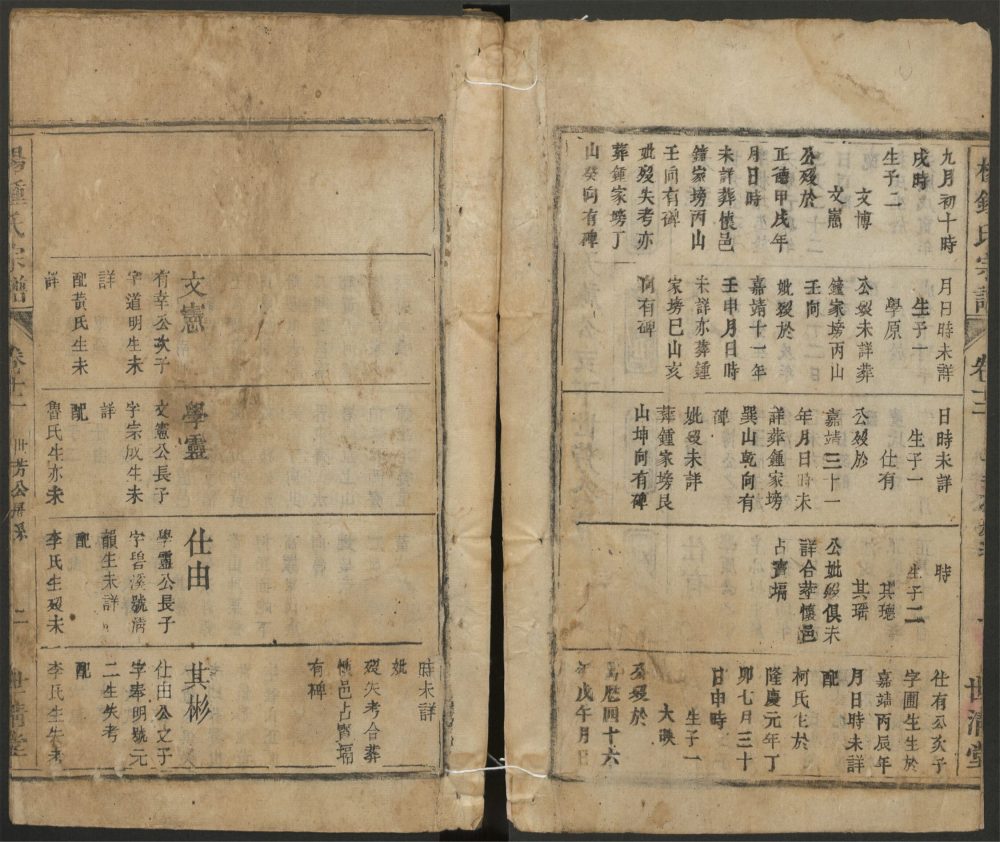 九月初十時
戌時
生子二
文博
文憲
公歿於
正德甲戌年
月日時
未詳葬懷邑
鍾家塝丙山
壬向有碑
妣歿失考亦
葬鍾家塝丁
山癸向有碑
月日時未詳
生子一
學原
公歿未詳葬
鍾家塝丙山
壬向
妣歿於
嘉靖十一年
壬申月日時
未詳亦葬鍾
家塝巳山亥
向有碑
日時未詳
生子一
仕有
公歿於
嘉靖三十一
年月日時未
詳葬鍾家塝
巽山乾向有
碑
妣歿未詳
葬鍾家塝艮
山坤向有碑
時
生子二
其璁
其瑶
公妣歿俱未
詳合葬懷邑
占寶塥
仕有公次子
字圃生生於
嘉靖丙辰年
月日時未詳
配
柯氏生於
隆慶元年丁
卯七月三十
日申時
生子一
大
公歿於
萬歷四十六
年戊午月日
楊鍾氏宗譜
世清堂
時未詳
妣
歿失考合葬
懷邑占寶塥
有碑
文憲
有幸公次子
字道明生未
詳
配黃氏生未
詳
學靈
文憲公長子
字宗成生未
詳
配
魯氏生亦未
仕由
學靈公長子
字碧溪號清
韻生未詳
配
李氏生歿未
其彬
仕由公之子
字奉明號元
二生失考
配
李氏生失未
鍾氏宗譜
卷十一
世芳公房系
二
世清堂